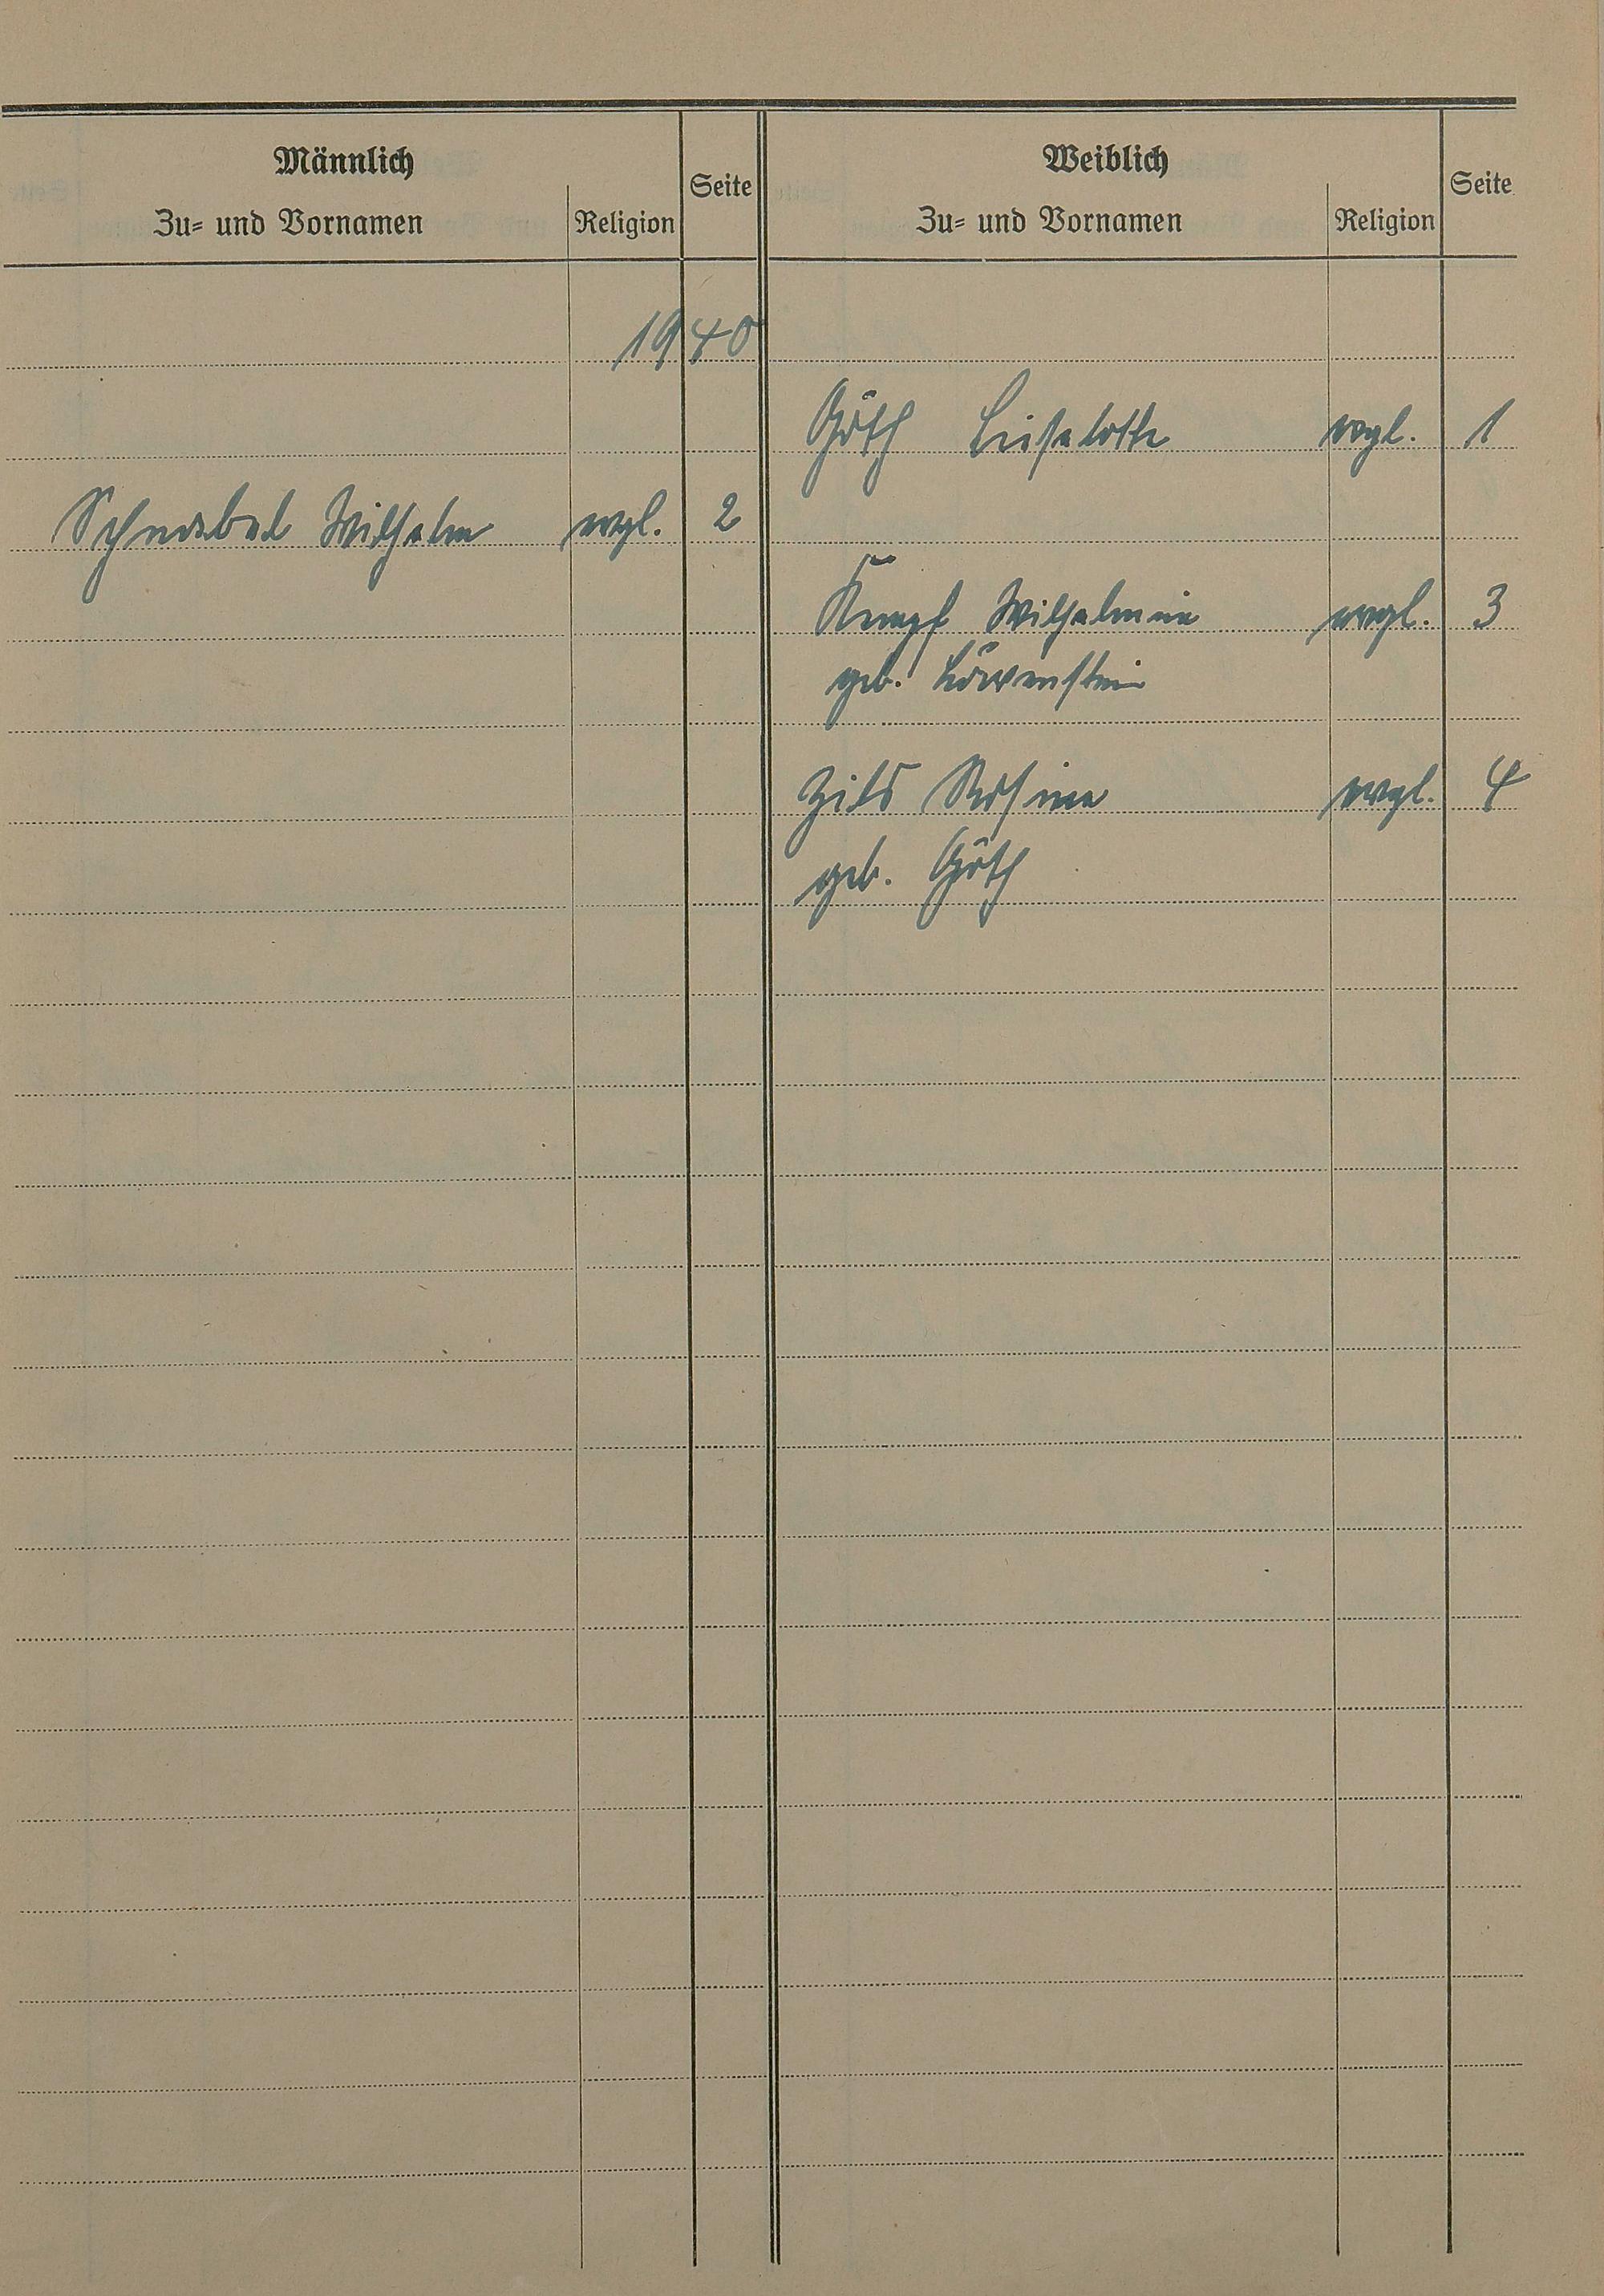 Männlich
Zu- und Vornamen
Religion
Seite
Weiblich
Zu- und Vornamen
Religion
Seite
1940
Göth Lieselotte evgl. 1
Schnabel Wilhelm evgl. 2
Kempf Wilhelmine evgl. 3
geb. Löwenstein
Zils Rosina evgl. 4
geb. Göth